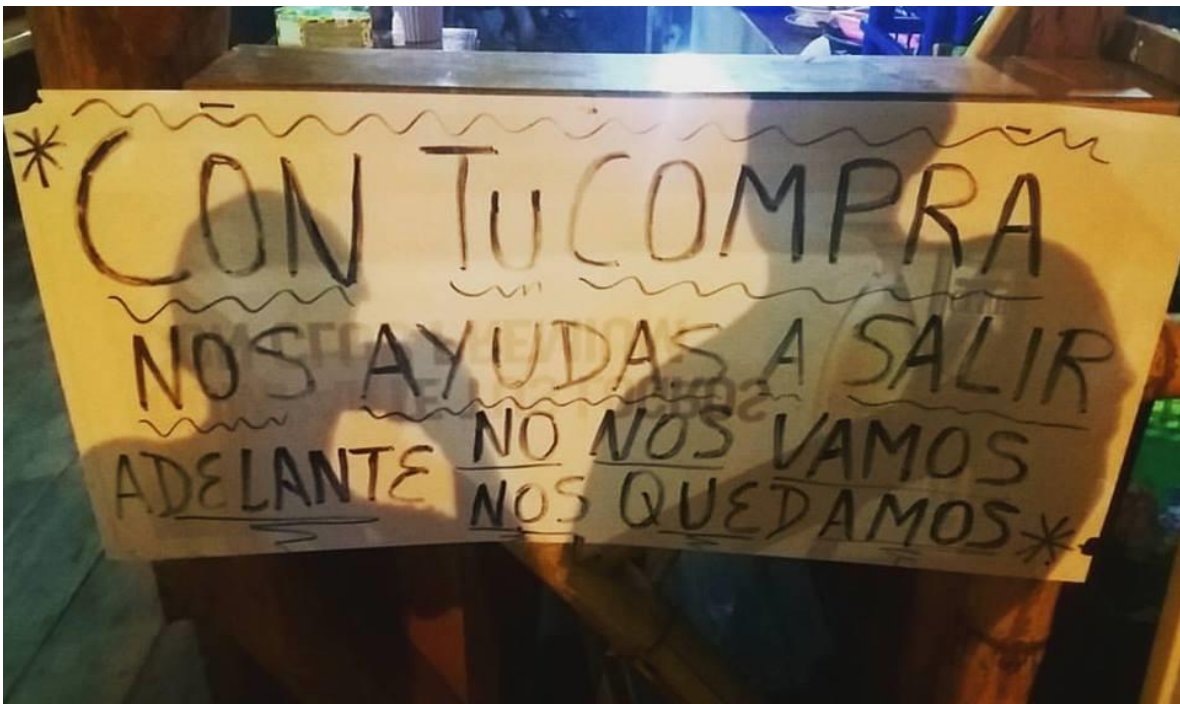 *CON TU COMPRA
NOS AYUDAS A SALIR
ADELANTE NO NOS VAMOS
NOS QUEDAMOS*